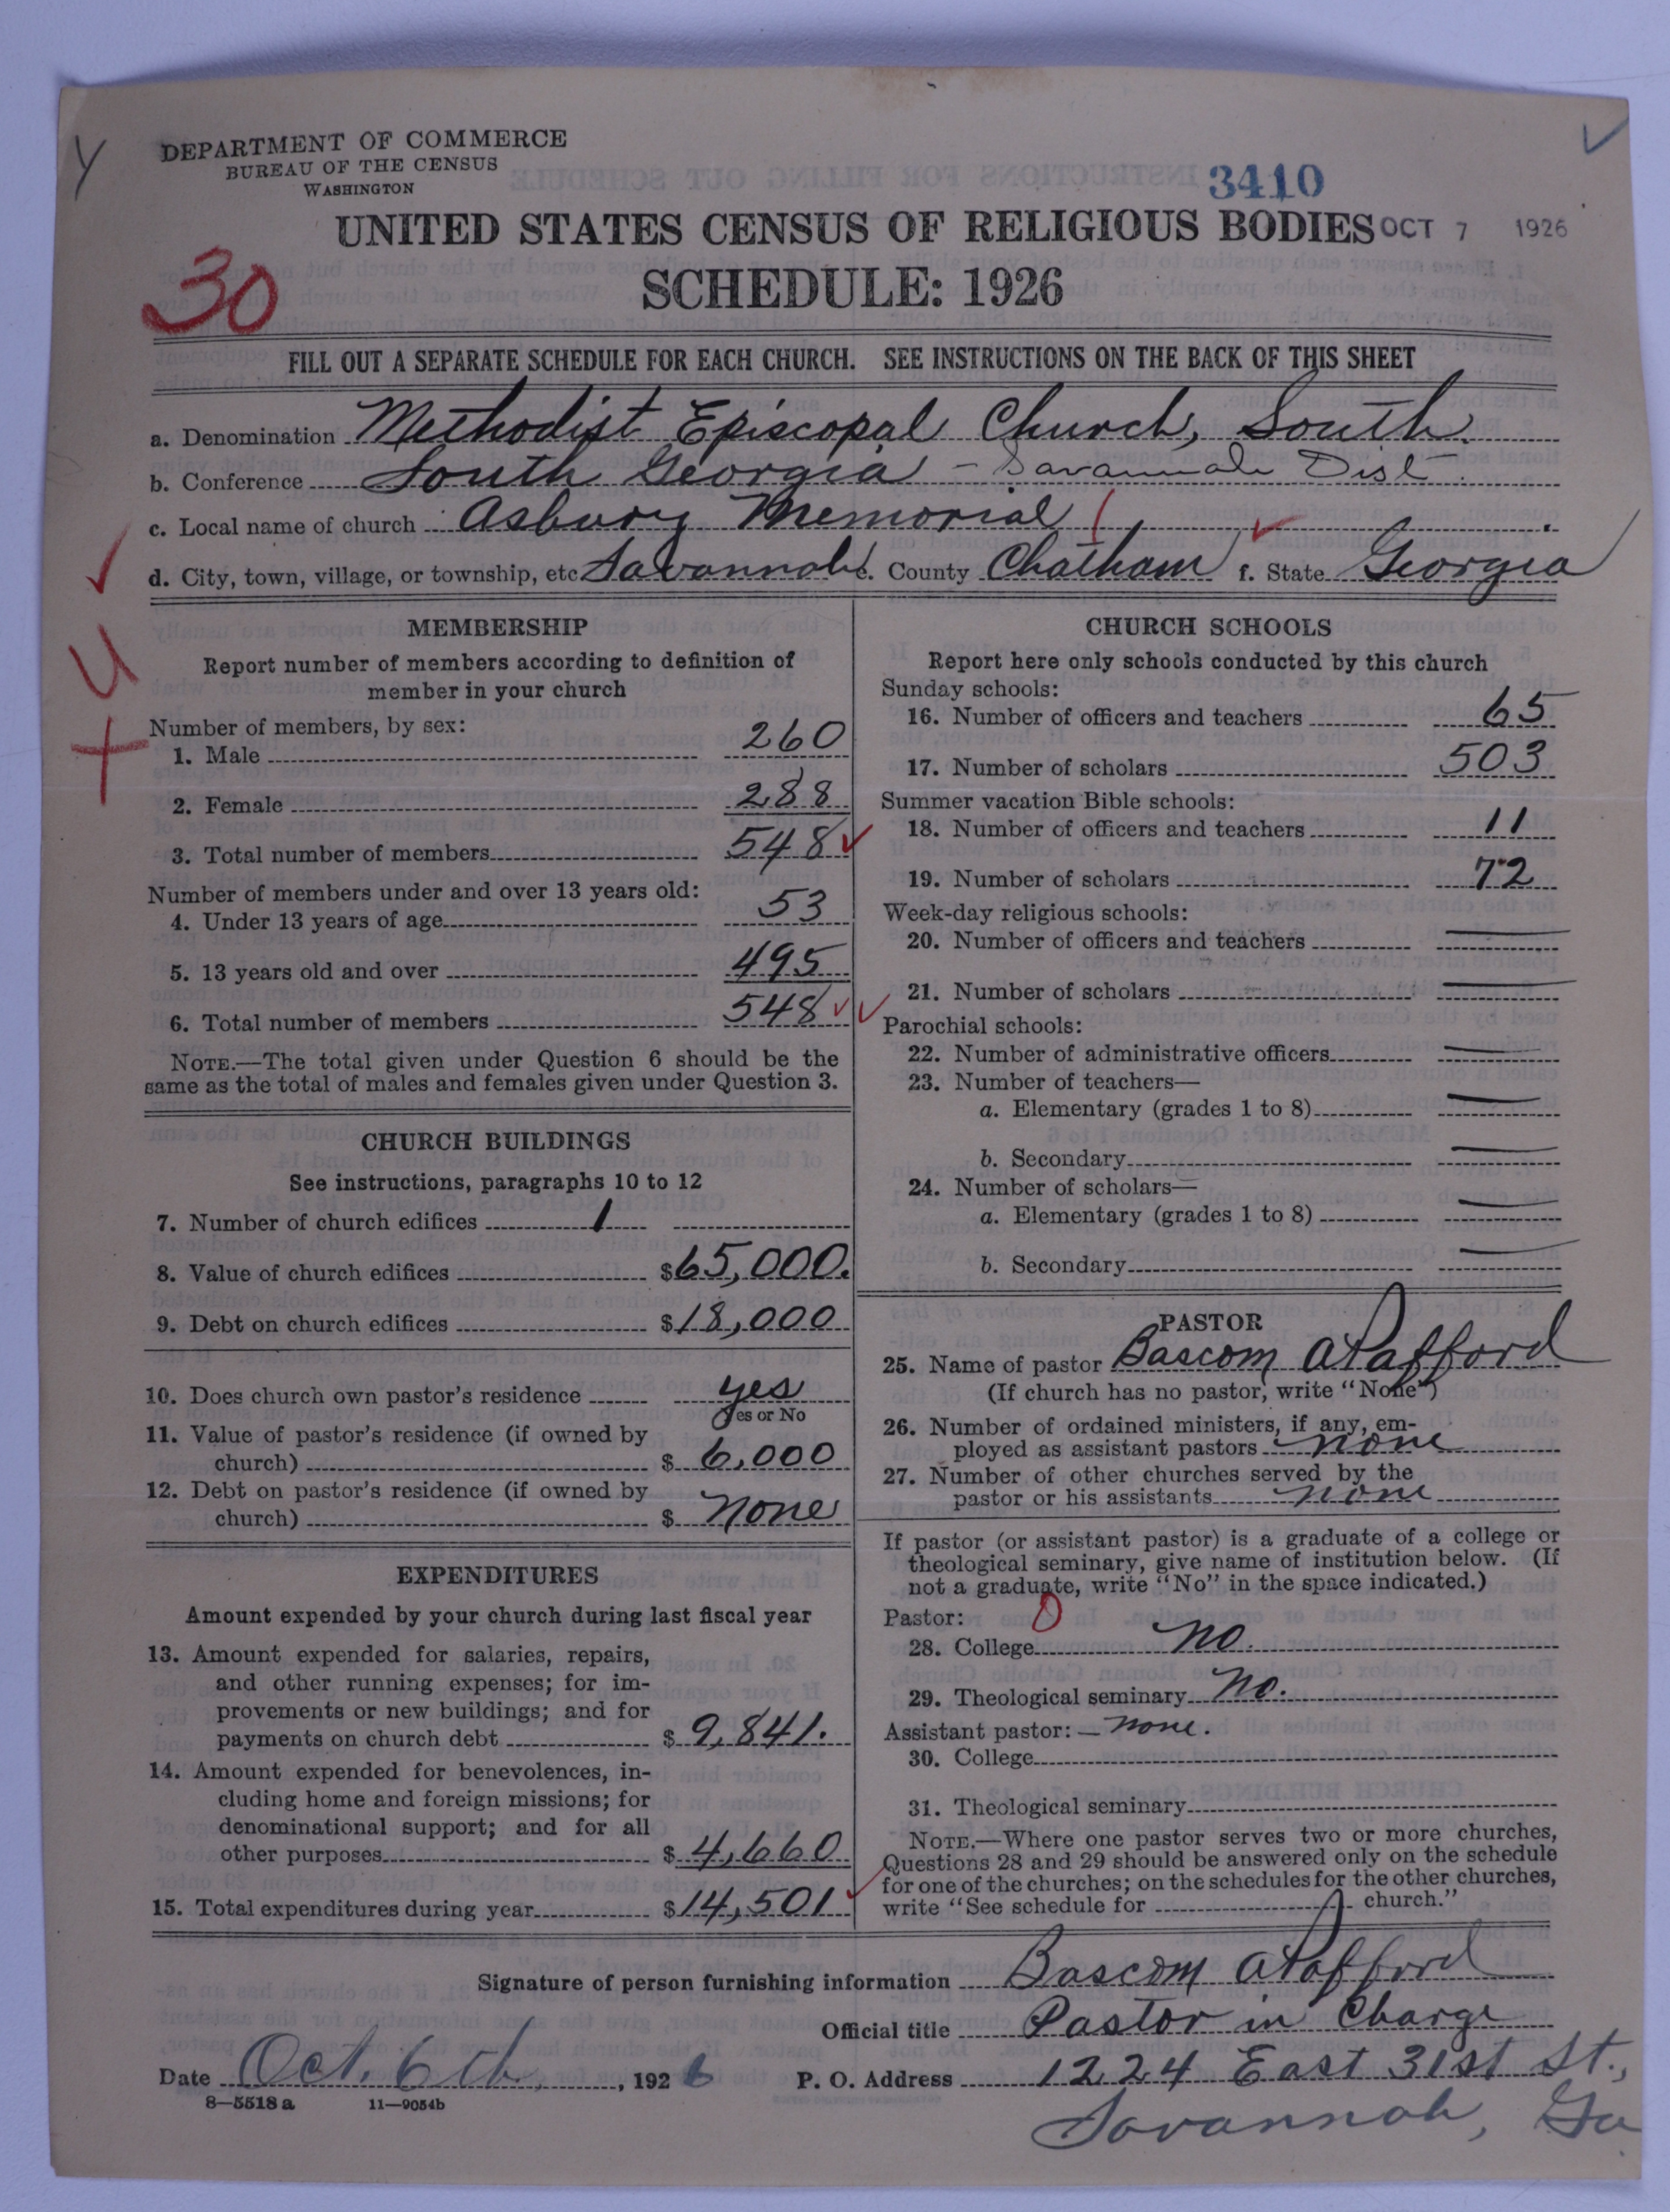 DEPARTMENT OF COMMERCE
BUREAU OF THE CENSUS
WASHINGTON
3410
UNITED STATES CENSUS OF RELIGIOUS BODIES OCT 7 1926
30
SCHEDULE: 1926
FILL OUT A SEPARATE SCHEDULE FOR EACH CHURCH. SEE INSTRUCTIONS ON THE BACK OF THIS SHEET
a. Denomination Methodist Episcopal Church, South.
b. Conference South Georgia - Savannah Dist
c. Local name of church Asbury Memorial
d. City, town, village, or township, etc Savannah e. County Chatham f. State Georgia
MEMBERSHIP
Report number of members according to definition of
member in your church
Number of members, by sex:
1. Male 260
2. Female 288
3. Total number of members 548
Number of members under and over 13 years old:
4. Under 13 years of age 53
5. 13 years old and over 495
6. Total number of members 548
NOTE.—The total given under Question 6 should be the
same as the total of males and females given under Question 3.
CHURCH BUILDINGS
See instructions, paragraphs 10 to 12
7. Number of church edifices 1
8. Value of church edifices $65,000.
9. Debt on church edifices $18,000
10. Does church own pastor's residence yes
Yes or No
11. Value of pastor's residence (if owned by
church) $ 6,000
12. Debt on pastor's residence (if owned by
church) $ none
EXPENDITURES
Amount expended by your church during last fiscal year
13. Amount expended for salaries, repairs,
and other running expenses; for im-
provements or new buildings; and for
payments on church debt $ 9,841.
14. Amount expended for benevolences, in-
cluding home and foreign missions; for
denominational support; and for all
other purposes $ 4,660
15. Total expenditures during year $14,501
CHURCH SCHOOLS
Report here only schools conducted by this church
Sunday schools:
16. Number of officers and teachers 65
17. Number of scholars 503
Summer vacation Bible schools:
18. Number of officers and teachers 11
19. Number of scholars 72
Week-day religious schools:
20. Number of officers and teachers
21. Number of scholars
Parochial schools:
22. Number of administrative officers
23. Number of teachers—
a. Elementary (grades 1 to 8)
b. Secondary
24. Number of scholars—
a. Elementary (grades 1 to 8)
b. Secondary
PASTOR
25. Name of pastor Bascom A Pafford
(If church has no pastor, write "None")
26. Number of ordained ministers, if any, em-
ployed as assistant pastors none
27. Number of other churches served by the
pastor or his assistants none
If pastor (or assistant pastor) is a graduate of a college or
theological seminary, give name of institution below. (If
not a graduate, write "No" in the space indicated.)
Pastor: 0
28. College no.
29. Theological seminary no.
Assistant pastor: — none.
30. College
31. Theological seminary
NOTE.—Where one pastor serves two or more churches,
Questions 28 and 29 should be answered only on the schedule
for one of the churches; on the schedules for the other churches,
write "See schedule for church."
Signature of person furnishing information Bascom A Pafford
Official title Pastor in Charge
Date Oct. 6th, 1926 P. O. Address 1224 East 31st St.,
8—5518a 11—9054b
Savannah, Ga